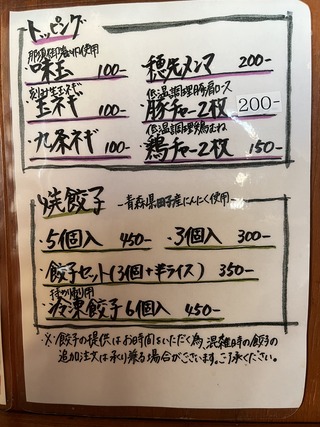 トッピング
那須御養卵使用
味玉 100-
穂先メンマ 200-
刻み生玉ねぎ
玉ネギ 100-
低温調理豚肩ロース
豚チャー2枚 200-
九条ネギ 100-
低温調理鶏むね
鶏チャー2枚 150-
焼餃子 -青森県田子産にんにく使用-
・5個入 450-
・3個入 300-
・餃子セット(3個+半ライス) 350-
お持ち帰り用
・冷凍餃子6個入 450-
※餃子の提供はお時間をいただく為、混雑時の餃子の
追加注文は承り兼る場合がございます。ご了承ください。